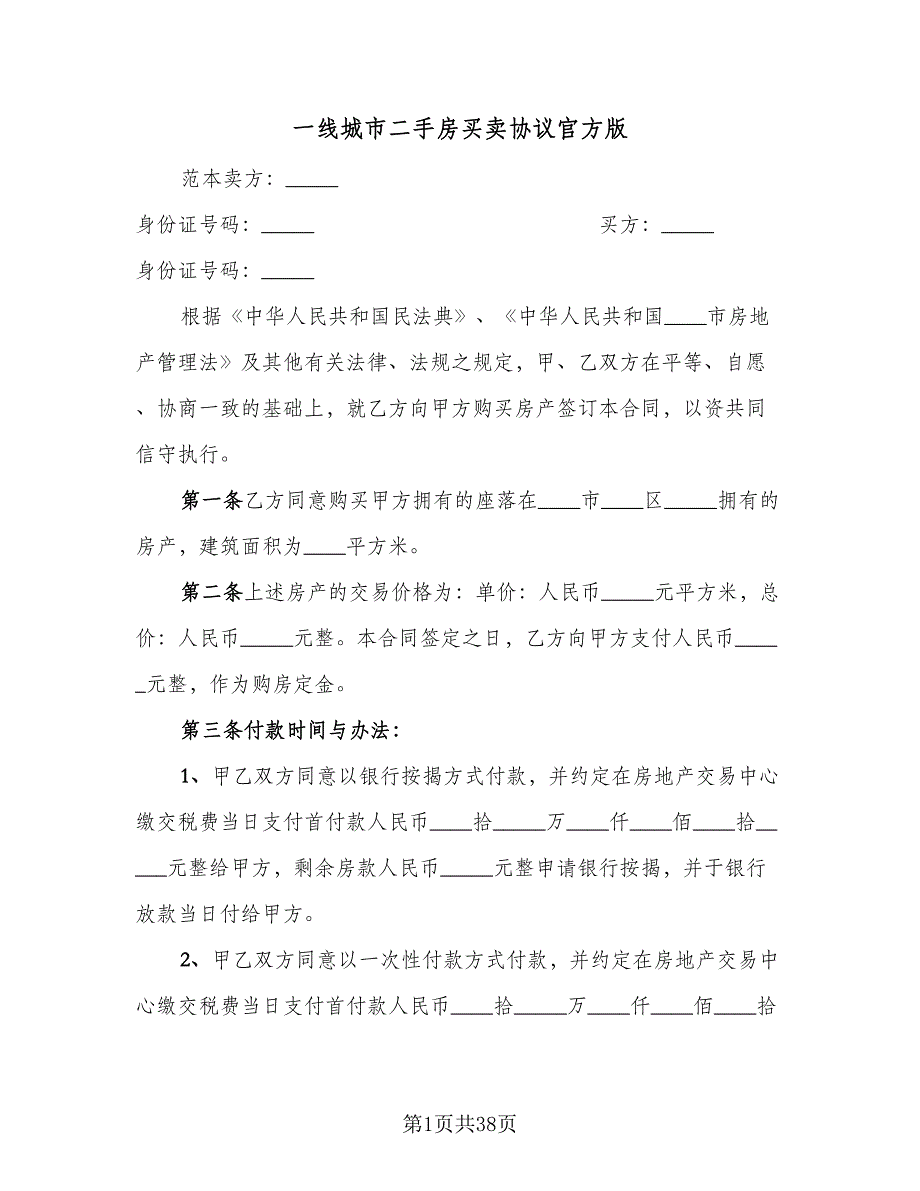 一线城市二手房买卖协议官方版
范本卖方：_____
身份证号码：_____ 买方：_____
身份证号码：_____
根据《中华人民共和国民法典》、《中华人民共和国____市房地
产管理法》及其他有关法律、法规之规定，甲、乙双方在平等、自愿
、协商一致的基础上，就乙方向甲方购买房产签订本合同，以资共同
信守执行。
第一条乙方同意购买甲方拥有的座落在____市____区_____拥有的
房产，建筑面积为____平方米。
第二条上述房产的交易价格为：单价：人民币_____元平方米，总
价：人民币_____元整。本合同签定之日，乙方向甲方支付人民币____
_元整，作为购房定金。
第三条付款时间与办法：
1、甲乙双方同意以银行按揭方式付款，并约定在房地产交易中心
缴交税费当日支付首付款人民币____拾_____万____仟____佰____拾__
___元整给甲方，剩余房款人民币_____元整申请银行按揭，并于银行
放款当日付给甲方。
2、甲乙双方同意以一次性付款方式付款，并约定在房地产交易中
心缴交税费当日支付首付款人民币____拾_____万____仟____佰____拾
第1页共38页